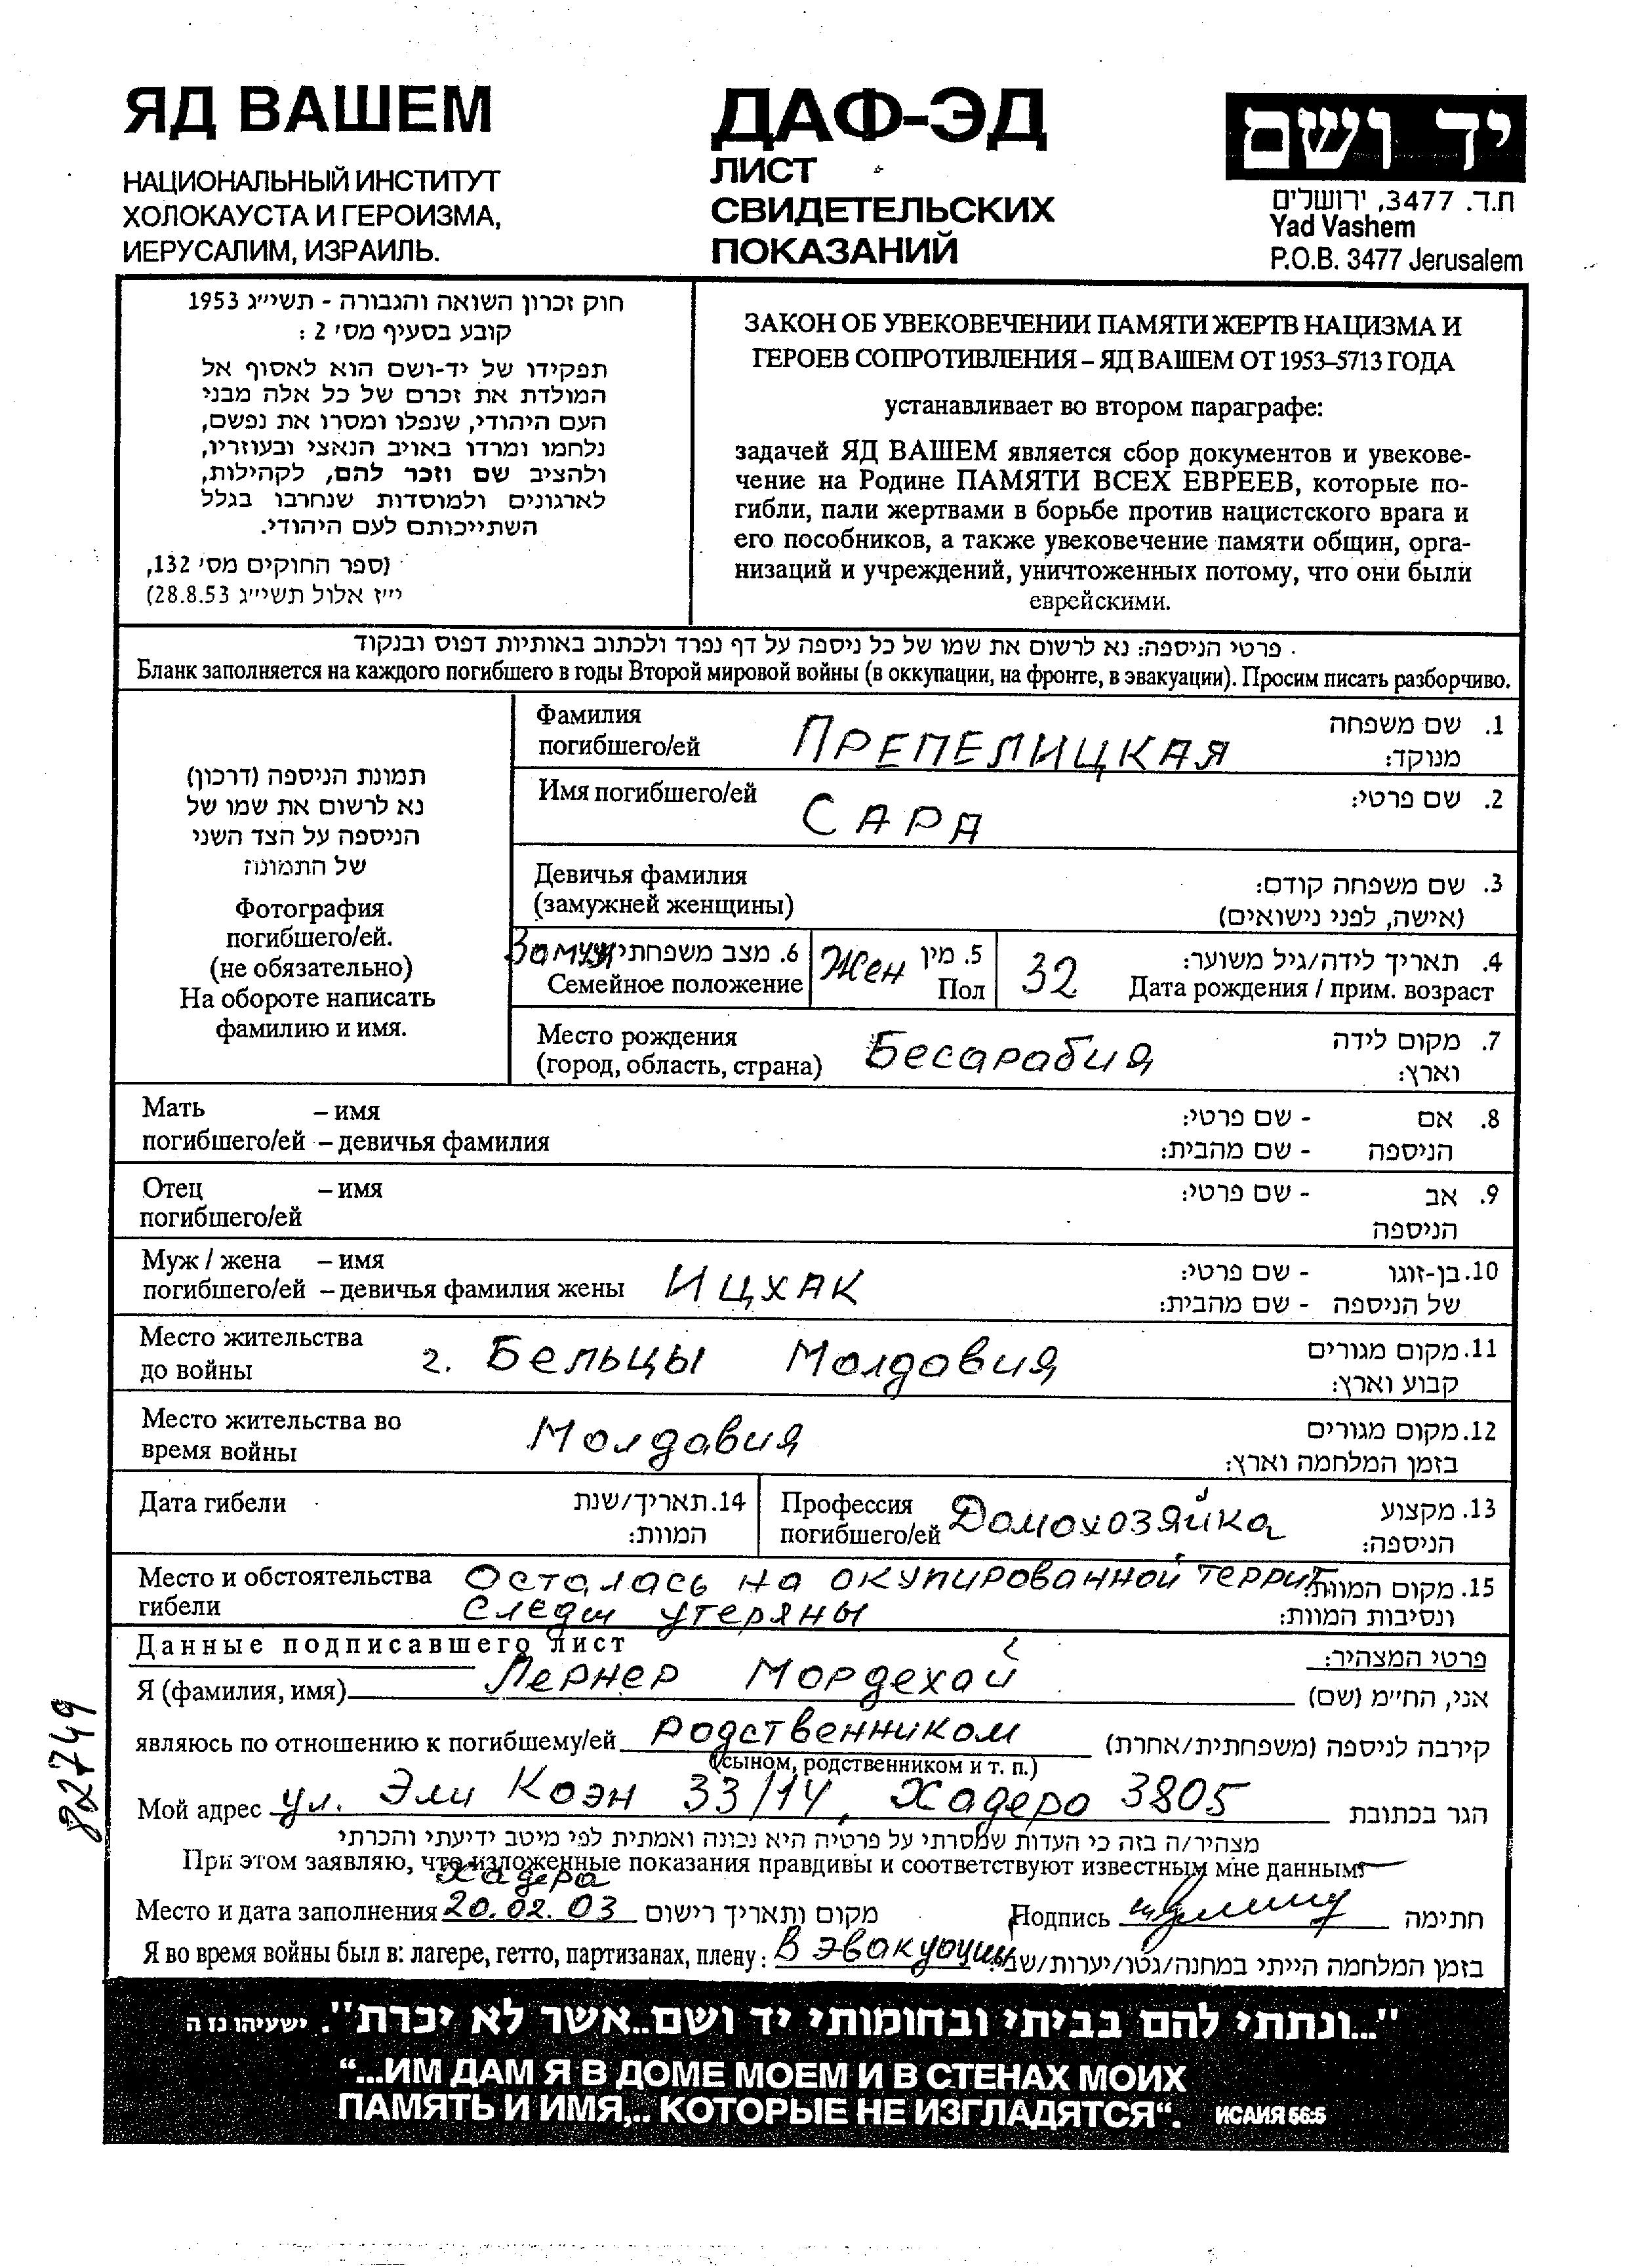 ЯД ВАШЕМ
НАЦИОНАЛЬНЫЙ ИНСТИТУТ
ХОЛОКАУСТА И ГЕРОИЗМА,
ИЕРУСАЛИМ, ИЗРАИЛЬ.
ДАФ-ЭД
ЛИСТ
СВИДЕТЕЛЬСКИХ
ПОКАЗАНИЙ
יד ושם
ת.ד. 3477, ירושלים
Yad Vashem
P.O.B. 3477 Jerusalem
חוק זכרון השואה והגבורה - תשי״ג 1953
קובע בסעיף מס׳ 2 :
תפקידו של יד-ושם הוא לאסוף אל
המולדת את זכרם של כל אלה מבני
העם היהודי, שנפלו ומסרו את נפשם,
נלחמו ומרדו באויב הנאצי ובעוזריו,
ולהציב שם וזכר להם, לקהילות,
לארגונים ולמוסדות שנחרבו בגלל
השתייכותם לעם היהודי.
(ספר החוקים מס׳ 132,
י״ז אלול תשי״ג 28.8.53)
ЗАКОН ОБ УВЕКОВЕЧЕНИИ ПАМЯТИ ЖЕРТВ НАЦИЗМА И
ГЕРОЕВ СОПРОТИВЛЕНИЯ – ЯД ВАШЕМ ОТ 1953–5713 ГОДА
устанавливает во втором параграфе:
задачей ЯД ВАШЕМ является сбор документов и увекове-
чение на Родине ПАМЯТИ ВСЕХ ЕВРЕЕВ, которые по-
гибли, пали жертвами в борьбе против нацистского врага и
его пособников, а также увековечение памяти общин, орга-
низаций и учреждений, уничтоженных потому, что они были
еврейскими.
פרטי הניספה: נא לרשום את שמו של כל ניספה על דף נפרד ולכתוב באותיות דפוס ובנקוד
Бланк заполняется на каждого погибшего в годы Второй мировой войны (в оккупации, на фронте, в эвакуации). Просим писать разборчиво.
תמונת הניספה (דרכון)
נא לרשום את שמו של
הניספה על הצד השני
של התמונה
Фотография
погибшего/ей.
(не обязательно)
На обороте написать
фамилию и имя.
Фамилия
погибшего/ей ПРЕПЕЛИЦКАЯ
1. שם משפחה
מנוקד:
Имя погибшего/ей САРА
2. שם פרטי:
Девичья фамилия
(замужней женщины)
3. שם משפחה קודם:
(אישה, לפני נישואים)
Замужн 6. מצב משפחתי
Семейное положение
Жен 5. מין
Пол
32 4. תאריך לידה/גיל משוער:
Дата рождения / прим. возраст
Место рождения
(город, область, страна) Бесарабия
7. מקום לידה
וארץ:
Мать – имя
погибшего/ей – девичья фамилия
8. אם - שם פרטי:
הניספה - שם מהבית:
Отец – имя
погибшего/ей
9. אב - שם פרטי:
הניספה
Муж / жена – имя
погибшего/ей – девичья фамилия жены ИЦХАК
10. בן-זוגו - שם פרטי:
של הניספה - שם מהבית:
Место жительства
до войны г. Бельцы Молдавия
11. מקום מגורים
קבוע וארץ:
Место жительства во
время войны Молдавия
12. מקום מגורים
בזמן המלחמה וארץ:
Дата гибели
14. תאריך/שנת
המוות:
Профессия
погибшего/ей Домохозяйка
13. מקצוע
הניספה:
Место и обстоятельства Осталась на окупированной террит.
гибели следы утеряны
15. מקום המוות
ונסיבות המוות:
Данные подписавшего лист
פרטי המצהיר:
Я (фамилия, имя) Лернер Мордехай אני, הח״מ (שם)
являюсь по отношению к погибшему/ей родственником קירבה לניספה (משפחתית/אחרת)
(сыном, родственником и т. п.)
Мой адрес ул. Эли Коэн 33/14, Хадера 3805 הגר בכתובת
מצהיר/ה בזה כי העדות שמסרתי על פרטיה היא נכונה ואמתית לפי מיטב ידיעתי והכרתי
При этом заявляю, что изложенные показания правдивы и соответствуют известным мне данным:
Хадера
Место и дата заполнения 20.02.03 מקום ותאריך רישום Подпись חתימה
Я во время войны был в: лагере, гетто, партизанах, плену: В эвакуации בזמן המלחמה הייתי במחנה/גטו/יערות/שבי:
822749
"...ונתתי להם בביתי ובחומותי יד ושם..אשר לא יכרת". ישעיהו נז ה
“...ИМ ДАМ Я В ДОМЕ МОЕМ И В СТЕНАХ МОИХ
ПАМЯТЬ И ИМЯ,.. КОТОРЫЕ НЕ ИЗГЛАДЯТСЯ“. ИСАИЯ 56:5